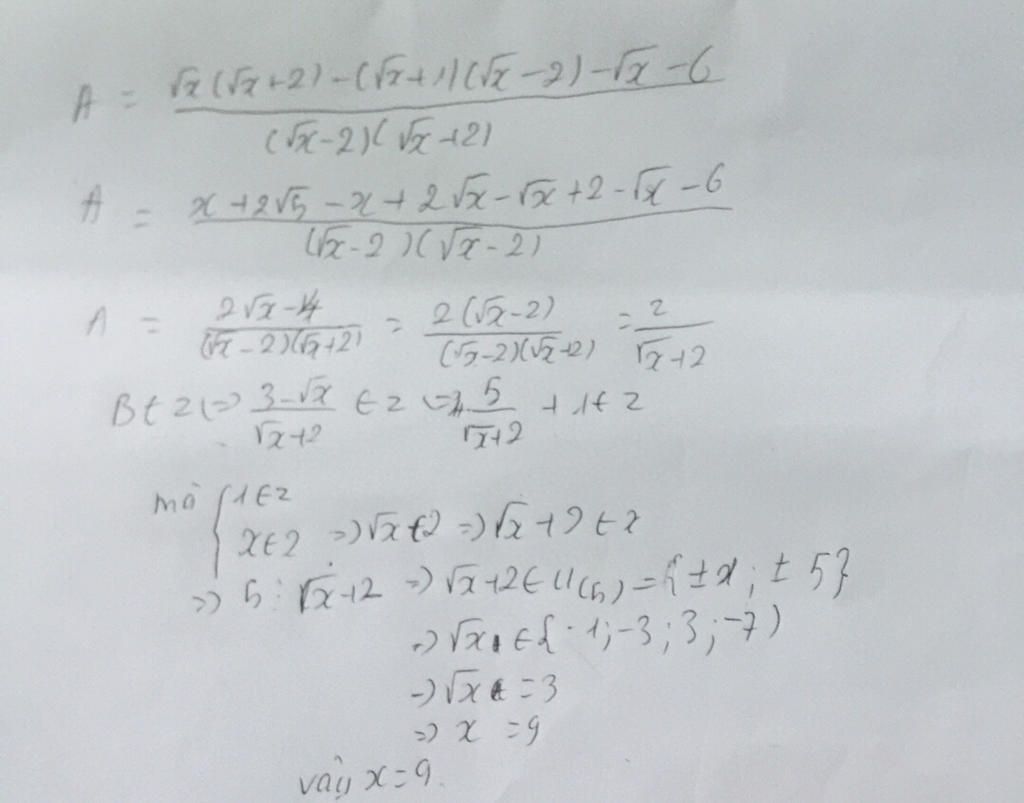 A = √x(√x+2)-(√x+1)(√x-2)-√x-6 / (√x-2)(√x+2)
A = x+2√5-x+2√x-√x+2-√x-6 / (√x-2)(√x-2)
A = 2√x-4 / (√x-2)(√x+2) = 2(√x-2) / (√x-2)(√x+2) = 2 / √x+2
B∈Z (=> 3-√x / √x+2 ∈ Z 5 / √x+2 + 1∈Z
mà { 1∈Z
x∈Z => √x∈Z => √x+2∈Z
=> 5 ⋮ √x+2 => √x+2∈Ư(5) = {±1; ±5}
=> √x ∈ {-1; -3; 3; -7}
=> √x = 3
=> x = 9
vậy x = 9.